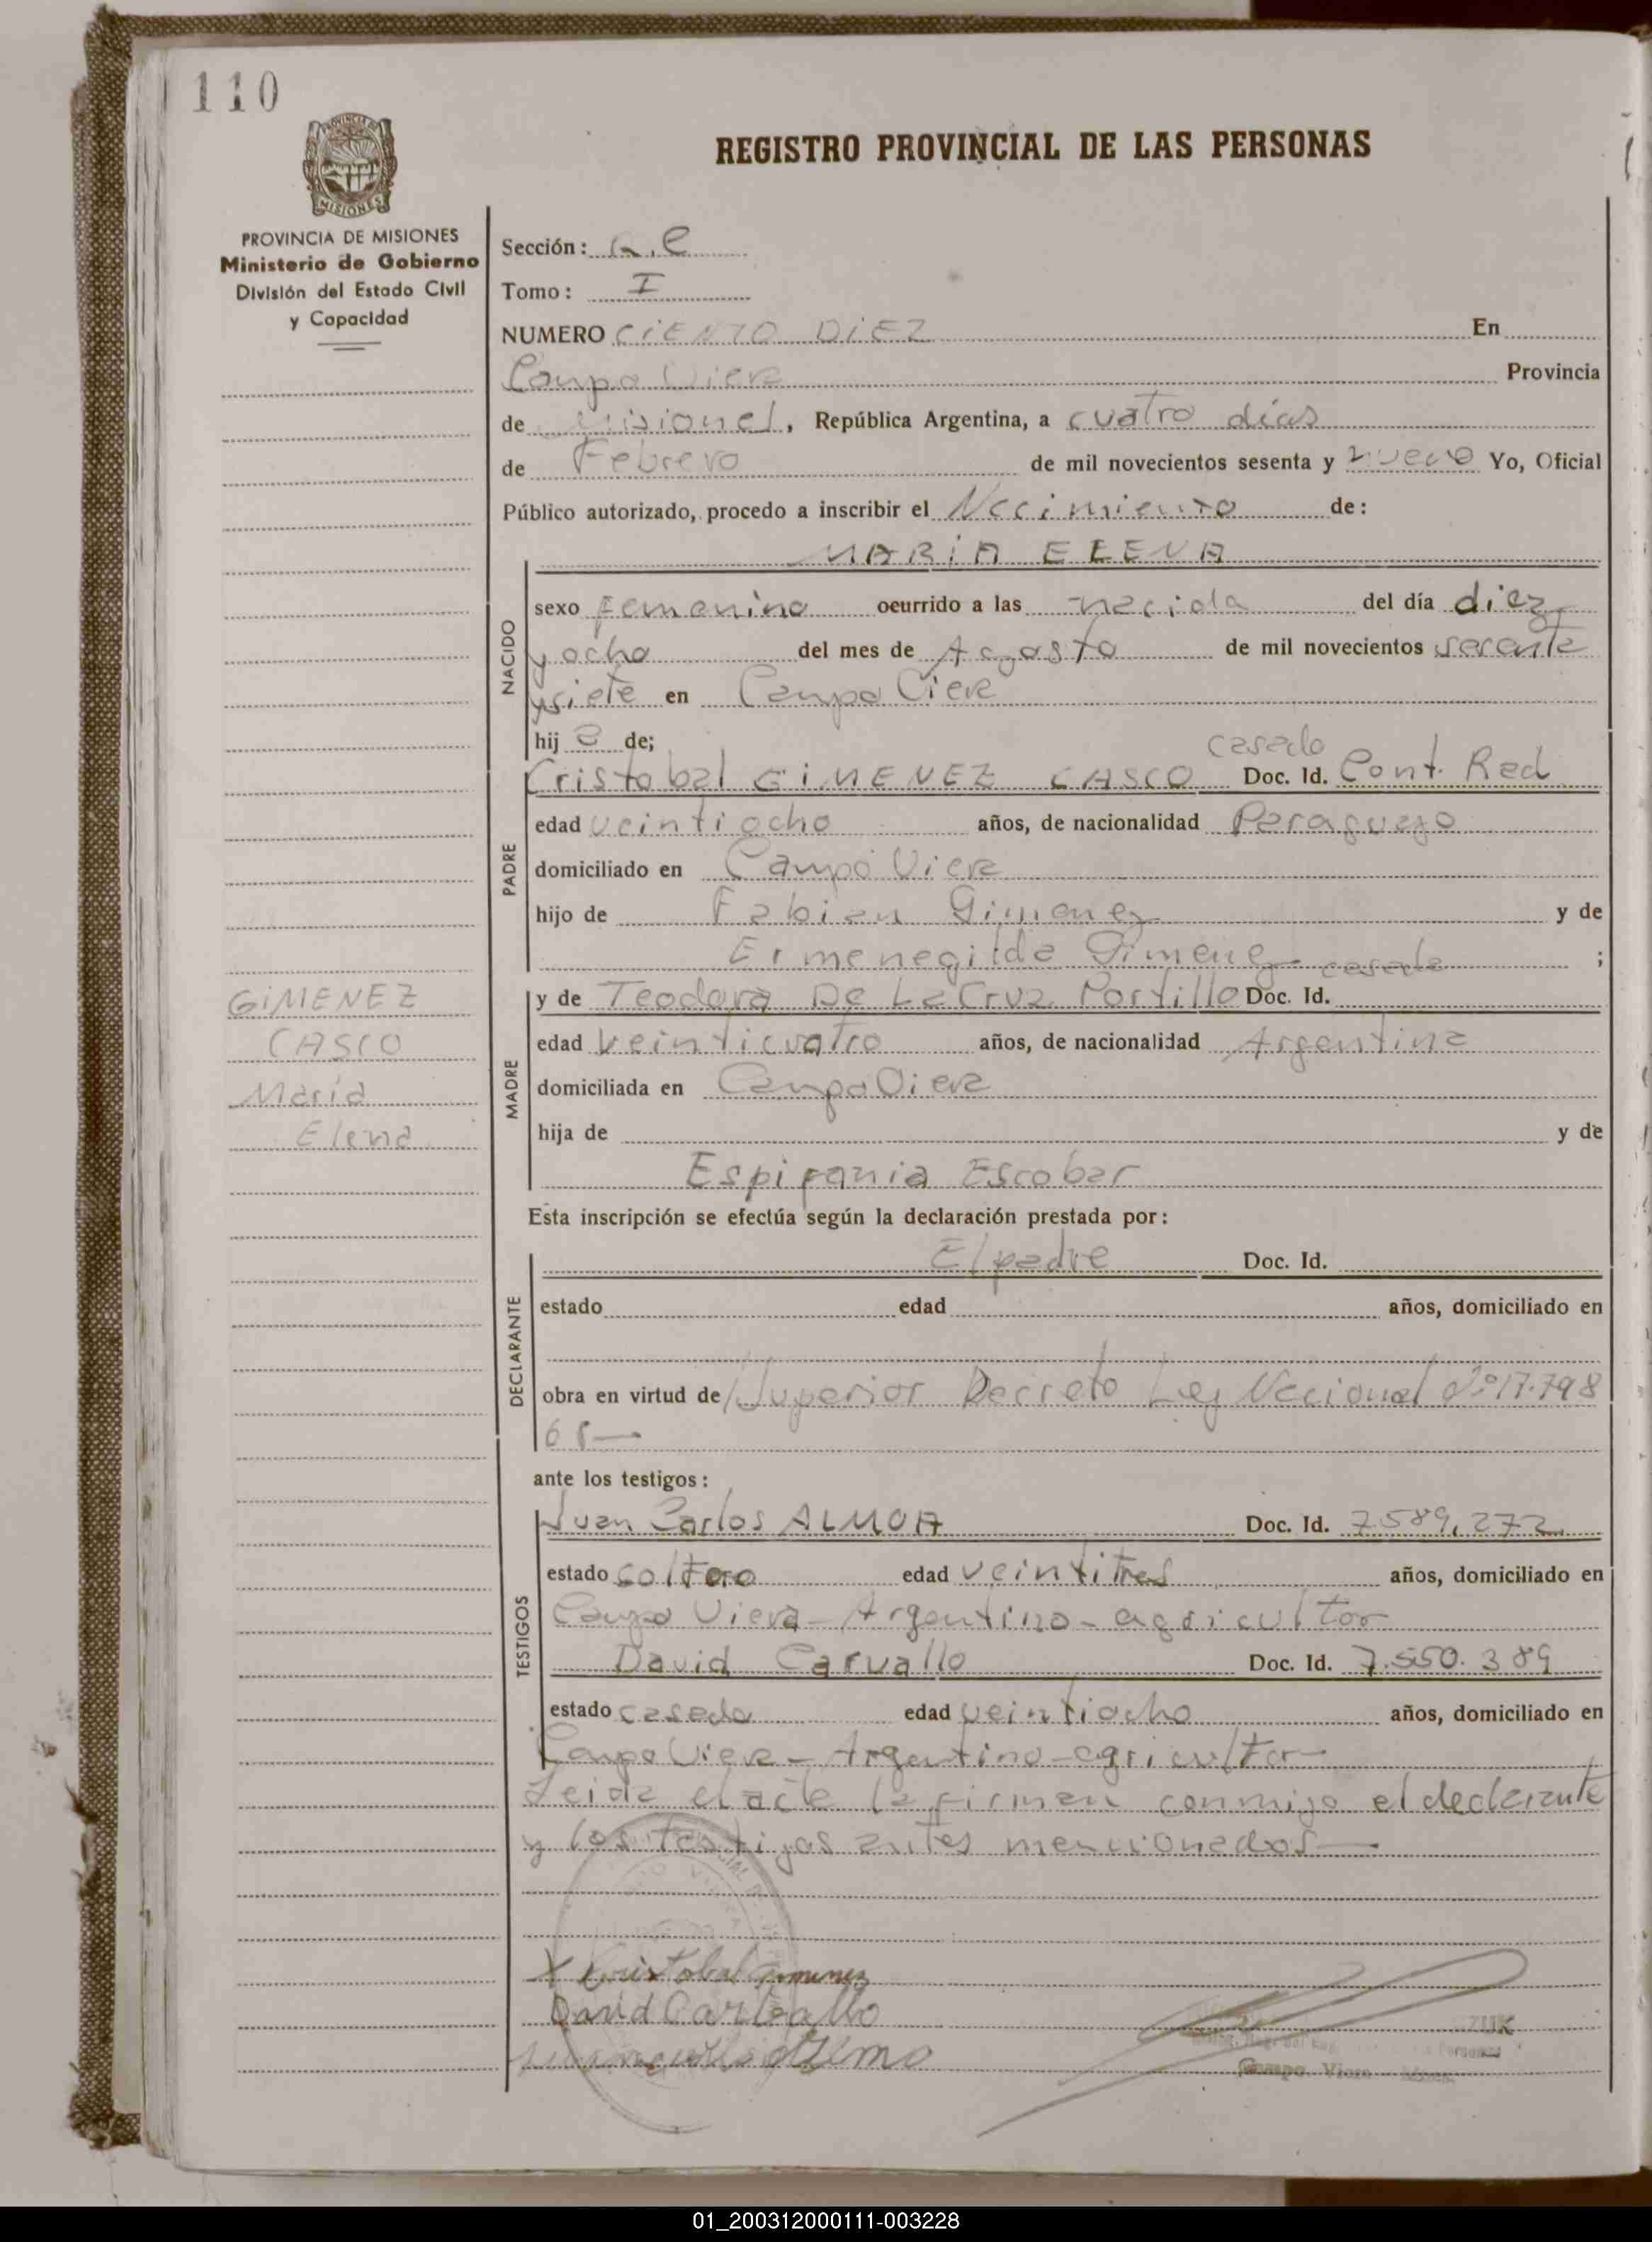 110
PROVINCIA DE MISIONES
REGISTRO PROVINCIAL DE LAS PERSONAS
PROVINCIA DE MISIONES
Ministerio de Gobierno
División del Estado Civil
y Capacidad
Sección:
Tomo: I
NUMERO CIENTO DIEZ En
Campo Viera Provincia
de Misiones, República Argentina, a cuatro días
de Febrero de mil novecientos sesenta y nueve Yo, Oficial
Público autorizado, procedo a inscribir el Nacimiento de:
MARIA ELENA
NACIDO
sexo Femenino ocurrido a las nacida del día diez
y ocho del mes de Agosto de mil novecientos sesenta
y siete en Campo Viera
hij a de;
casado
PADRE
Cristobal GIMENEZ CASCO Doc. Id. Cont. Red
edad veintiocho años, de nacionalidad Paraguayo
domiciliado en Campo Viera
hijo de Fabian Gimenez y de
Ermenegilda Gimenez casada ;
MADRE
y de Teodora De La Cruz Portillo Doc. Id.
edad veinticuatro años, de nacionalidad Argentina
domiciliada en Campo Viera
hija de y de
Espifania Escobar
GIMENEZ
CASCO
María
Elena
Esta inscripción se efectúa según la declaración prestada por:
DECLARANTE
El padre Doc. Id.
estado edad años, domiciliado en
obra en virtud de Superior Decreto Ley Nacional Nº 17.798
68—
ante los testigos:
TESTIGOS
Juan Carlos ALMUA Doc. Id. 7.589.272
estado soltero edad veintitres años, domiciliado en
Campo Viera - Argentino - agricultor
David Carvallo Doc. Id. 7.550.389
estado casado edad veintiocho años, domiciliado en
Campo Viera - Argentino - agricultor
Leida el acta la firman conmigo el declarante
y los testigos antes mencionados—
X Cristobal Gimenez
David Carballo
ZUK
Campo Viera
01_200312000111-003228